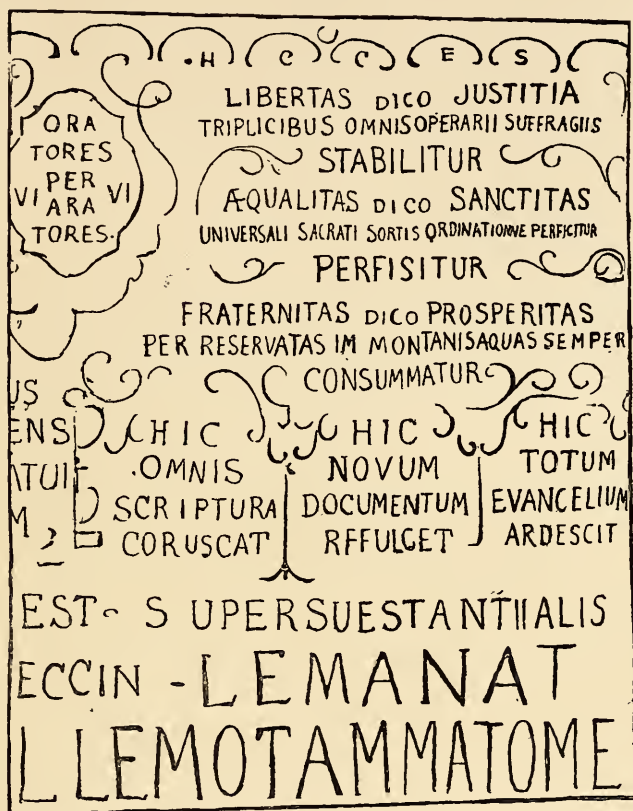 .H C C E S
ORA
TORES
PER
VI ARA VI
TORES.
LIBERTAS DICO JUSTITIA
TRIPLICIBUS OMNISOPERARII SUFFRAGIIS
STABILITUR
ÆQUALITAS DICO SANCTITAS
UNIVERSALI SACRATI SORTIS ORDINATIONVE PERFICITUR
PERFISITUR
FRATERNITAS DICO PROSPERITAS
PER RESERVATAS IM MONTANISAQUAS SEMPER
CONSUMMATUR
US
ENS
ATUIT
M
HIC
OMNIS
SCRIPTURA
CORUSCAT
HIC
NOVUM
DOCUMENTUM
RFFULGET
HIC
TOTUM
EVANCELIUM
ARDESCIT
EST S UPERSUESTANTIIALIS
ECCIN - LEMANAT
L LEMOTAMMATOME